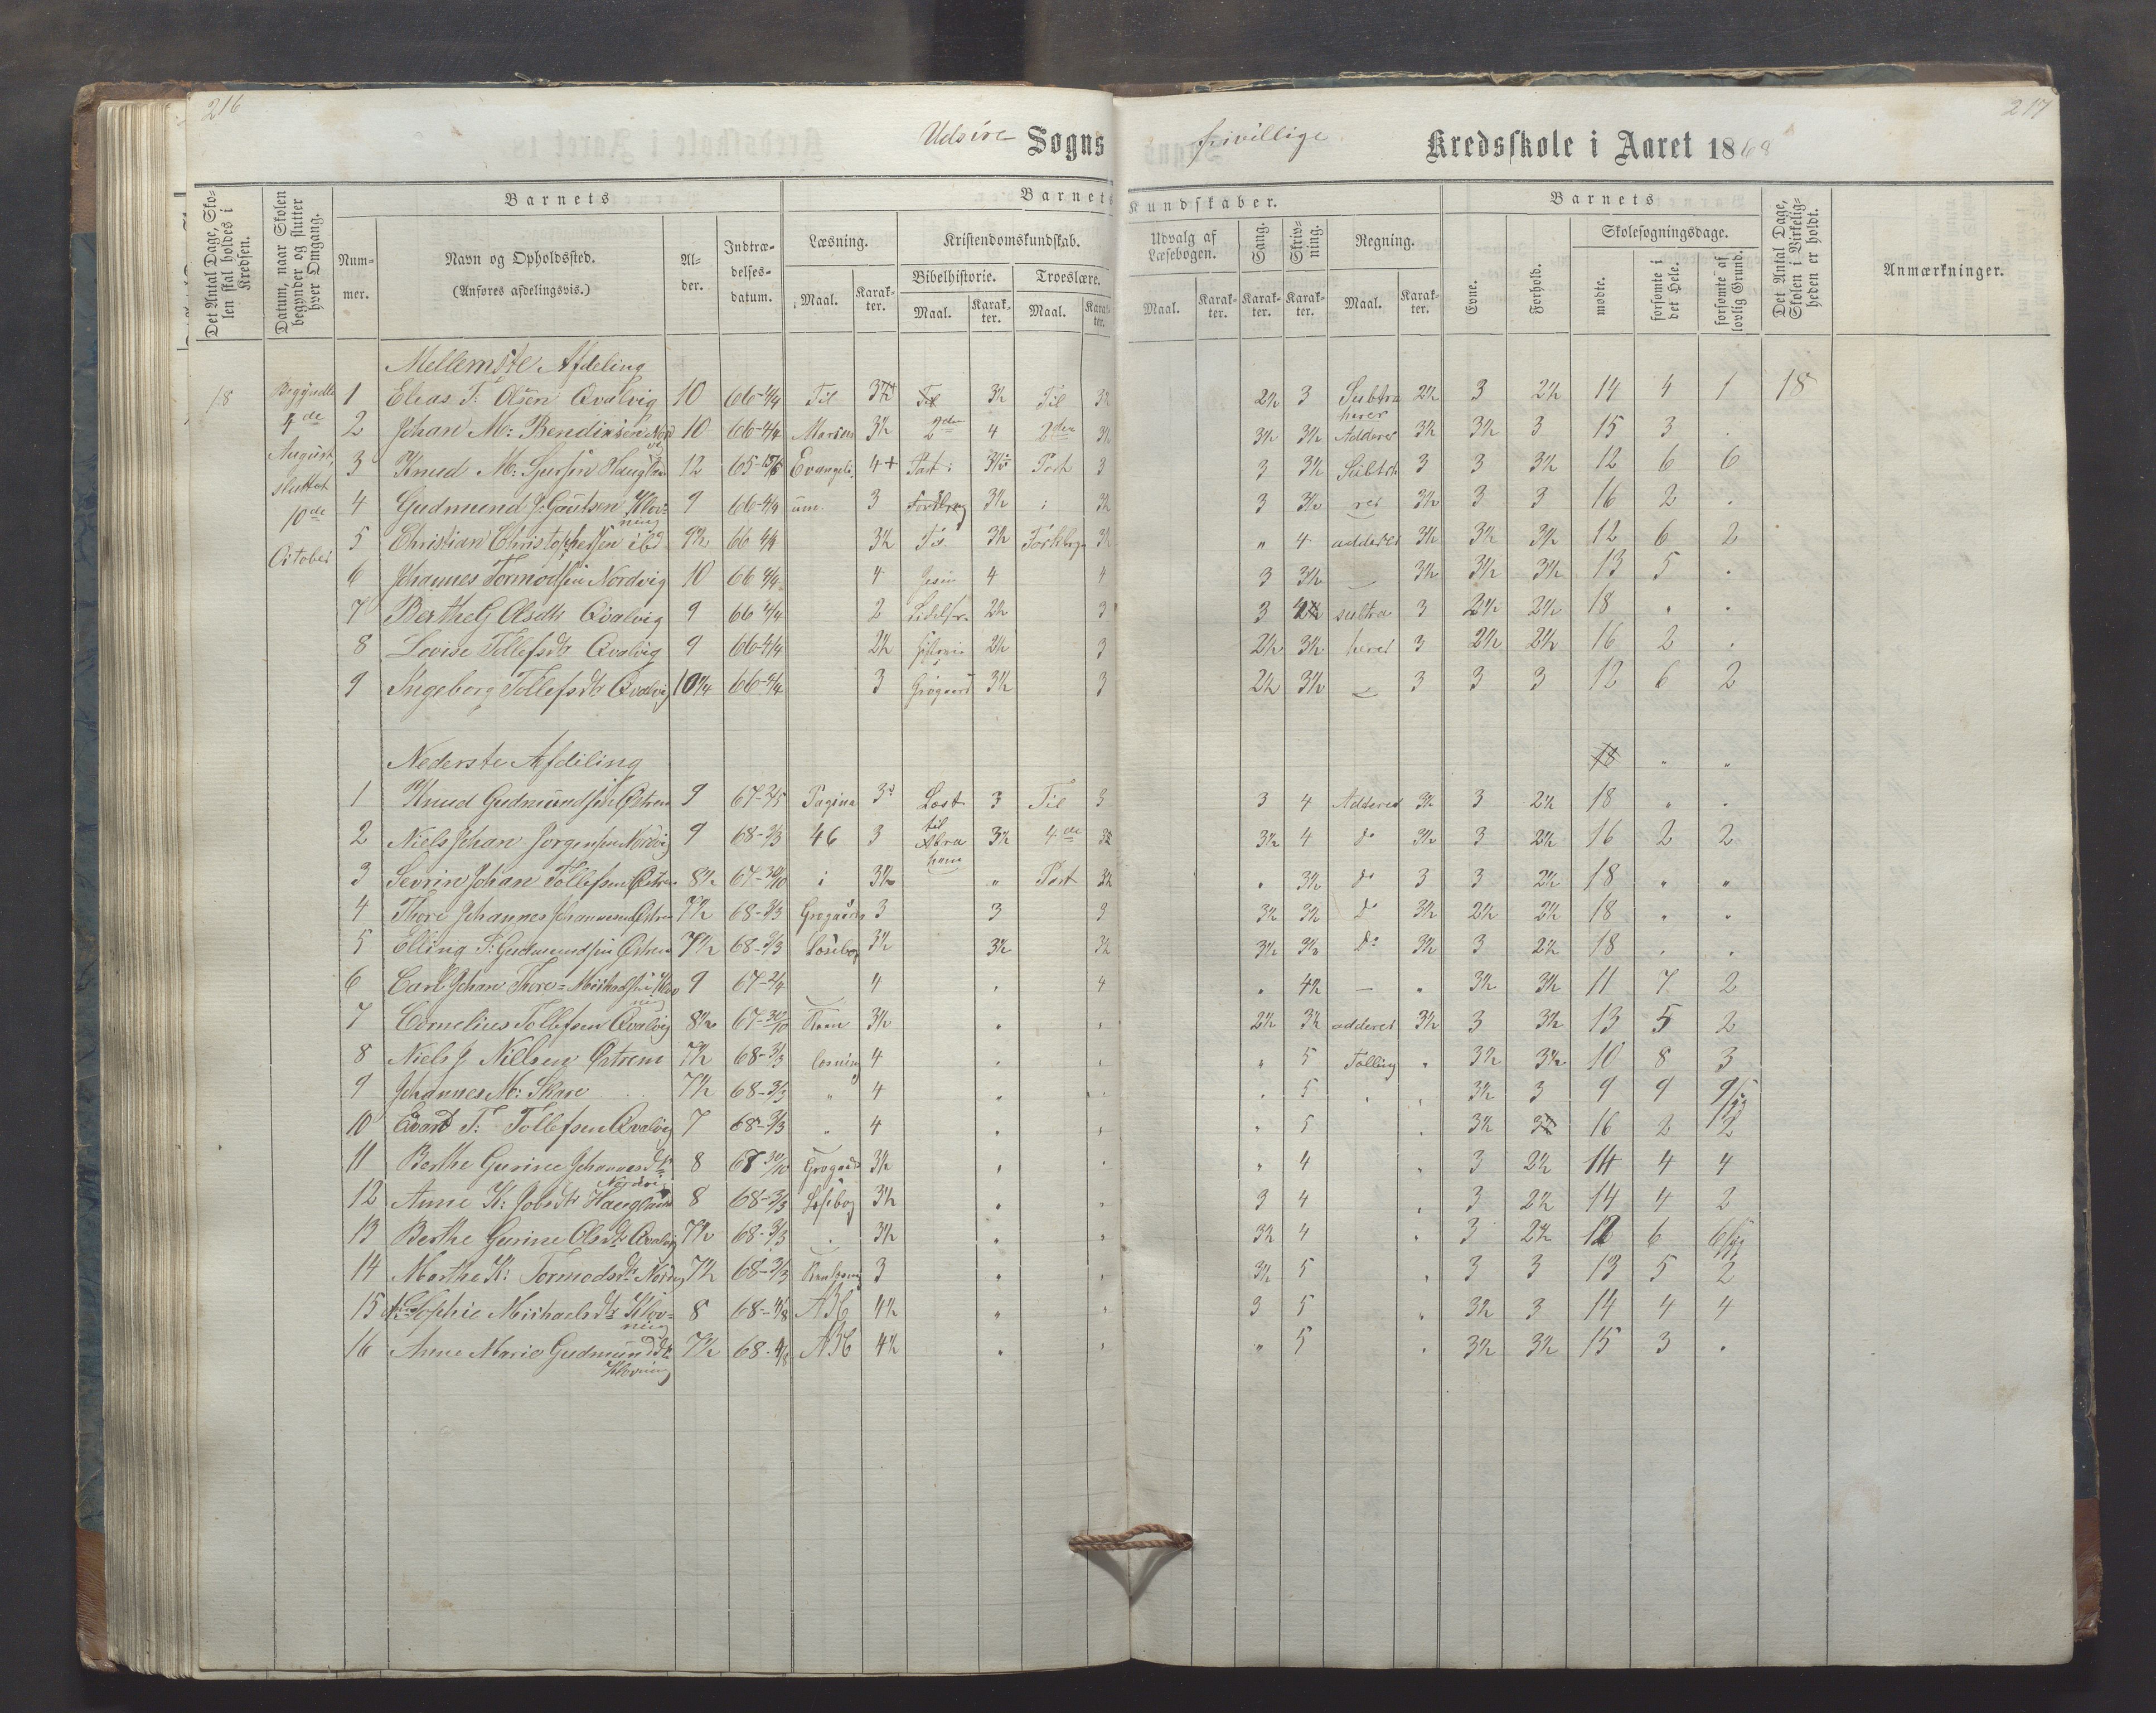 216
217
Udsire Sogns frivillige Kredsskole i Aaret 1868
Det Antal Dage, Skolen skal holdes i Kredsen.
Datum, naar Skolen begynder og slutter hver Omgang.
Barnets
Nummer.
Navn og Opholdssted.
(Anføres afdelingsvis.)
Alder.
Indtrædelsesdatum.
Barnets Kundskaber.
Læsning.
Maal.
Karakter.
Kristendomskundskab.
Bibelhistorie.
Maal.
Karakter.
Troeslære.
Maal.
Karakter.
Udvalg af Læsebogen.
Maal.
Karakter.
Sang.
Karakter.
Skrivning.
Karakter.
Regning.
Maal.
Karakter.
Barnets
Evne.
Forhold.
Skolesøgningsdage.
mødte.
forsømte i det Hele.
forsømte af lovlig Grund.
Det Antal Dage, Skolen i Virkeligheden er holdt.
Anmærkninger.
18
Begyndte
4de
August,
sluttet
10de
October
Mellemste Afdeling
1 Eleas T. Olsen Qvalvig 10 66-4/4 Til 3½ Til 3½ Til 3½ 2½ 3 Subtra 2½ 3 2½ 14 4 1 18
herer
2 Johan M: Bendiksen Nord 10 66-4/4 Marcus 3½ 2den 4 2den 3½ 3½ 3½ Adderer 3½ 3½ 3 15 3 .
vig
3 Knud M: Sjursen Haugland 12 65-15/5 Evangeli 4+ Part: 3½ Part 3 3 3½ Subtrh 3 3 3½ 12 6 6
4 Gudmund J: Gautsen Klov- 9 66-4/4 um. 3 3½ : 3½ 3 3½ rer 3½ 3 3 16 2 .
ning
5 Christian Christophersen ibd 9½ 66 4/4 3½ 3½ 3½ " 4 adderer 3½ 3½ 3½ 12 6 2
6 Johannes Tormodsen Nordvig 10 66 4/4 4 Jesu 4 4 3 3½ 3½ 3½ 3½ 13 5 .
7 Berthe G Olsdtr Qvalvig 9 66 4/4 2 2½ 3 3 subtra 3 2½ 2½ 18 . .
8 Lovise Tollefsdtr Qvalvig 9 66-4/4 2½ Historie 2½ 3 2½ 3½ herer 3 2½ 2½ 16 2 .
9 Ingeborg Tollefsdtr Qvalvig 10¼ 66-4/4 3 Grøgaard 3½ 3 2½ 3½ 3 3 3 12 6 2
Nederste Afdeling 18 " "
1 Knud Gudmundsen Østrem 9 67-2/5 Pagina 3 Læst 3 Til 3 3 4 Adderer 3½ 3 2½ 18 " .
2 Niels Johan Jørgensen Nordvig 9 68-3/3 46 3 til Abra ham 3½ 4de 3½ 3½ 4 do 3½ 3 2½ 16 2 2
3 Sevrin Johan Tollefsen Østrem 8½ 67-30/10 i 3½ " Part 3½ . 3½ do 3 3 2½ 18 " "
4 Thore Johannes Johannessen Østrem 7½ 68-3/3 Grøgaards 3 3 3 3½ 3½ do 3½ 2½ 2½ 18 " .
5 Elling T: Gudmundsen Østrem 7½ 68-3/3 Læsebog 3½ 3½ 3½ 3½ 3½ do 3½ 3 2½ 18 . .
6 Carl Johan Thore-Michaelsen Klov 9 67-2/4 4 . 4 . 4½ — " 3½ 3½ 11 7 2
ning
7 Cornelius Tollefsen Qvalvig 8½ 67-30/10 3½ . . 2½ 3½ adderer 3½ 3 3½ 13 5 2
8 Niels J Nilsen Østrem 7½ 68-3/3 4 . . . 5 Tælling . 3½ 3½ 10 8 3
9 Johannes M: Skare 7½ 68-3/3 " 4 . . . 5 . . 3½ 3 9 9
10 T: Tollefsen Qvalvig 7 68-3/3 " 4 . . . 5 . 3½ 16 2 2
11 Berthe Gurine Johannesdtr 8 67 30/10 Grøgaards 3½ . . " 4 " 3 2½ 14 4 4
Nordvig
12 Anne K: Jobsdtr Haugland 8 68-3/3 Læsebog 3½ . . 3 4 . 3 2½ 14 4 2
13 Berthe Gurine Olsdtr Qvalvig 7½ 68-3/3 . 3½ . . 3½ 4 . 3 2½ 12 6
14 Marthe K: Tormodsdtr Nordvig 7½ 68-3/3 3 . . 3½ 5 . 3 3 13 5 2
15 Sophie Michaelsdtr Klov- 8 68-4/8 ABC 4½ " . 3 5 " 3½ 3 14 4 4
ning
16 Anne Marie Gudmundsdtr 7½ 68-4/8 ABC 4½ . . " 5 . 3½ 3½ 15 3 .
Klovning